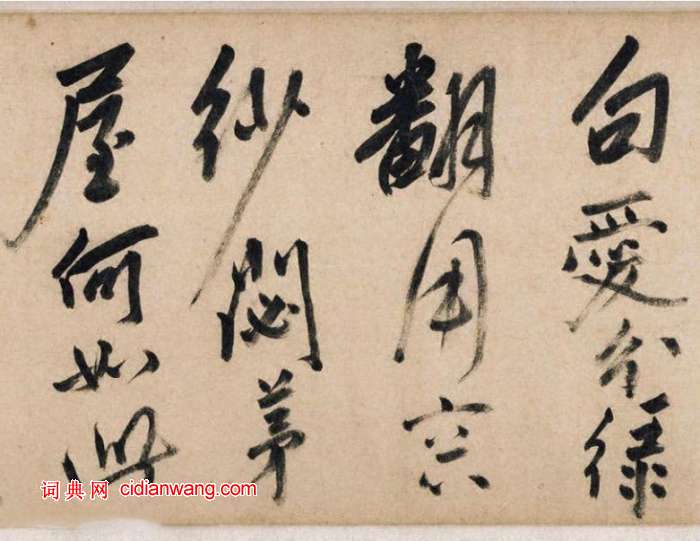 句愛分緑
翻用窗
紗閟茅
屋何如此
词典网 cidianwang.com